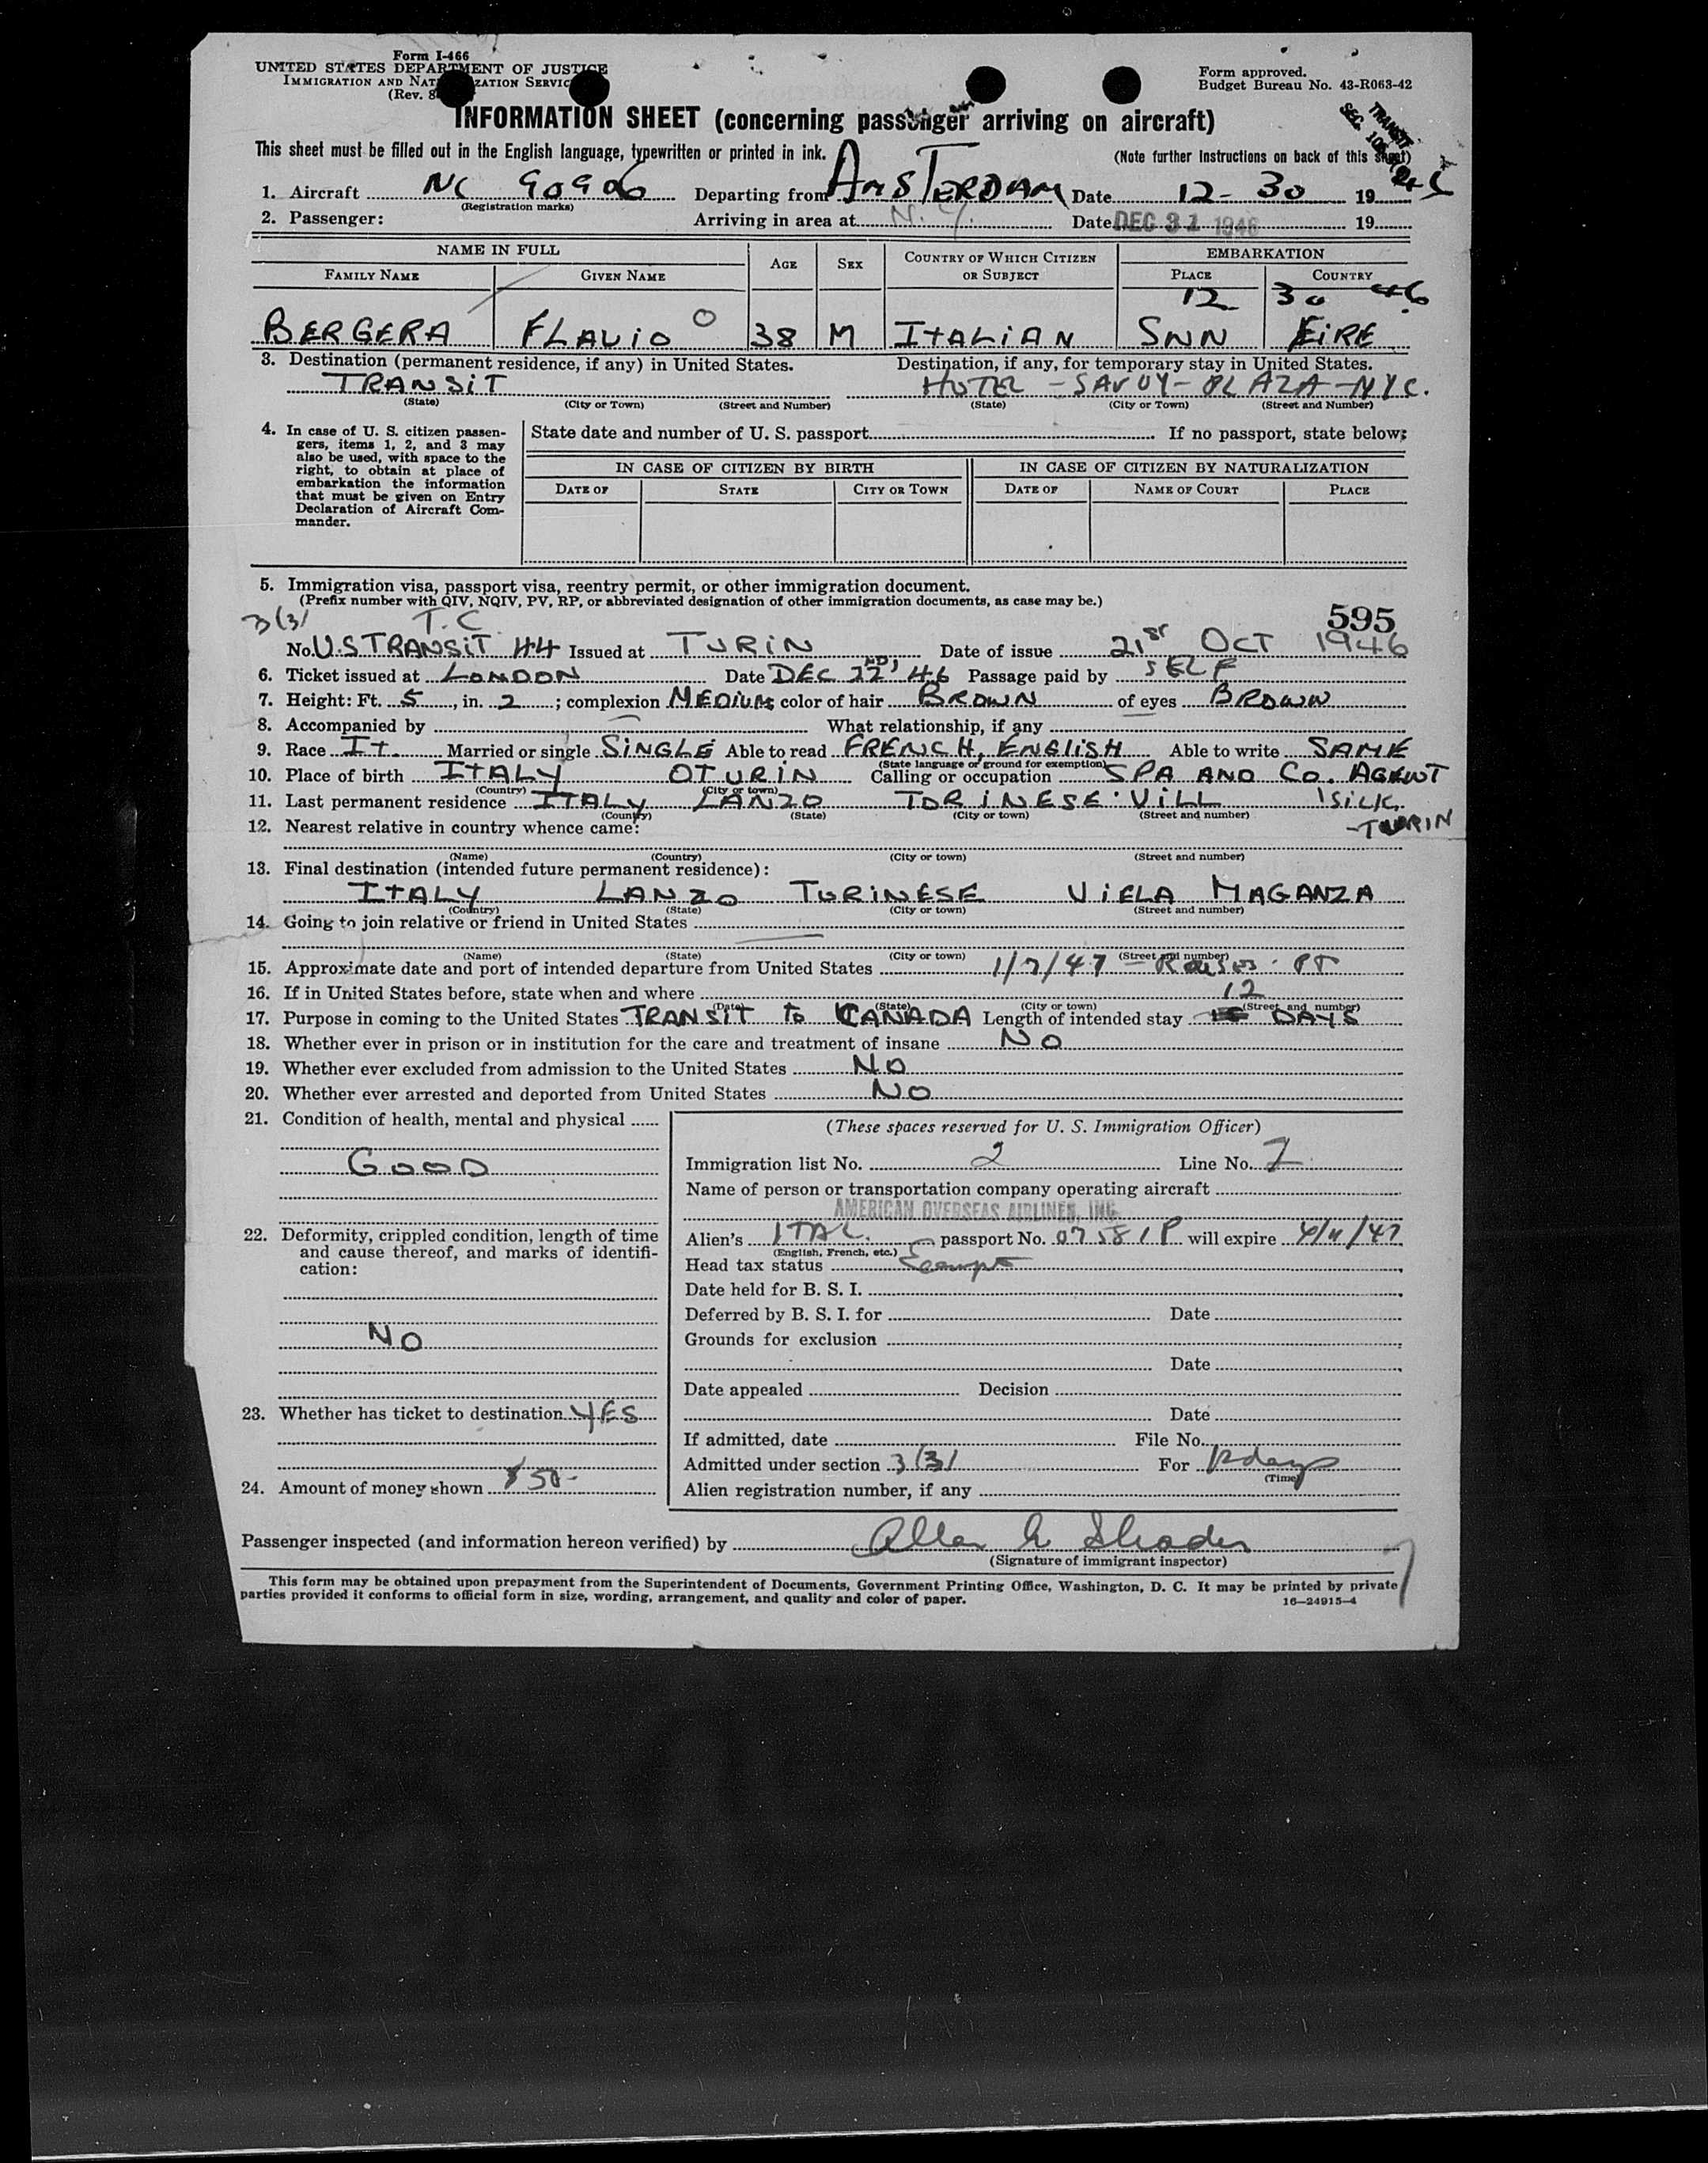 Form I-466
UNITED STATES DEPARTMENT OF JUSTICE
IMMIGRATION AND NAT ZATION SERVIC
(Rev. 8
Form approved.
Budget Bureau No. 43-R063-42
INFORMATION SHEET (concerning passenger arriving on aircraft)
TRANSIT
SEC.
This sheet must be filled out in the English language, typewritten or printed in ink. (Note further instructions on back of this sheet)
1. Aircraft NC 90906 Departing from AMSTERDAM Date 12-30 19
(Registration marks)
2. Passenger: Arriving in area at N.Y. Date DEC 31 1946 19
NAME IN FULL AGE SEX COUNTRY OF WHICH CITIZEN OR SUBJECT EMBARKATION
FAMILY NAME GIVEN NAME PLACE COUNTRY
12 30 46
BERGERA FLAVIO 38 M ITALIAN SNN EIRE
3. Destination (permanent residence, if any) in United States. Destination, if any, for temporary stay in United States.
TRANSIT HOTEL - SAVOY - PLAZA - NYC.
(State) (City or Town) (Street and Number) (State) (City or Town) (Street and Number)
4. In case of U. S. citizen passen-
gers, items 1, 2, and 3 may
also be used, with space to the
right, to obtain at place of
embarkation the information
that must be given on Entry
Declaration of Aircraft Com-
mander.
State date and number of U. S. passport If no passport, state below:
IN CASE OF CITIZEN BY BIRTH IN CASE OF CITIZEN BY NATURALIZATION
DATE OF STATE CITY OR TOWN DATE OF NAME OF COURT PLACE
5. Immigration visa, passport visa, reentry permit, or other immigration document.
(Prefix number with QIV, NQIV, PV, RP, or abbreviated designation of other immigration documents, as case may be.)
3(3) T.C. 595
No. U.S TRANSIT 44 Issued at TURIN Date of issue 21ST OCT 1946
6. Ticket issued at LONDON Date DEC 22ND, 46 Passage paid by SELF
7. Height: Ft. 5, in. 2; complexion MEDIUM color of hair BROWN of eyes BROWN
8. Accompanied by What relationship, if any
9. Race It. Married or single SINGLE Able to read FRENCH, ENGLISH Able to write SAME
(State language or ground for exemption)
10. Place of birth ITALY OTURIN Calling or occupation SPA AND CO. AGENT
(Country) (City or town)
11. Last permanent residence ITALY LANZO TORINESE VILL SILK.
(Country) (State) (City or town) (Street and number)
- TURIN
12. Nearest relative in country whence came:
(Name) (Country) (City or town) (Street and number)
13. Final destination (intended future permanent residence):
ITALY LANZO TURINESE VIELA MAGANZA
(Country) (State) (City or town) (Street and number)
14. Going to join relative or friend in United States
(Name) (State) (City or town) (Street and number)
15. Approximate date and port of intended departure from United States 1/7/47 -
16. If in United States before, state when and where
(Date) (State) (City or town) (Street and number)
12
17. Purpose in coming to the United States TRANSIT TO CANADA Length of intended stay DAYS
18. Whether ever in prison or in institution for the care and treatment of insane NO
19. Whether ever excluded from admission to the United States NO
20. Whether ever arrested and deported from United States NO
21. Condition of health, mental and physical
GOOD
22. Deformity, crippled condition, length of time
and cause thereof, and marks of identifi-
cation:
NO
23. Whether has ticket to destination YES
24. Amount of money shown $50-
(These spaces reserved for U. S. Immigration Officer)
Immigration list No. 2 Line No. 7
Name of person or transportation company operating aircraft
AMERICAN OVERSEAS AIRLINES, INC.
Alien's ITAL. passport No. 07581P will expire 4/11/47
(English, French, etc.)
Head tax status Exempt
Date held for B. S. I.
Deferred by B. S. I. for Date
Grounds for exclusion
Date
Date appealed Decision
Date
If admitted, date File No.
Admitted under section 3(3) For 12 days
(Time)
Alien registration number, if any
Passenger inspected (and information hereon verified) by
(Signature of immigrant inspector)
This form may be obtained upon prepayment from the Superintendent of Documents, Government Printing Office, Washington, D. C. It may be printed by private
parties provided it conforms to official form in size, wording, arrangement, and quality and color of paper. 16—24915-4